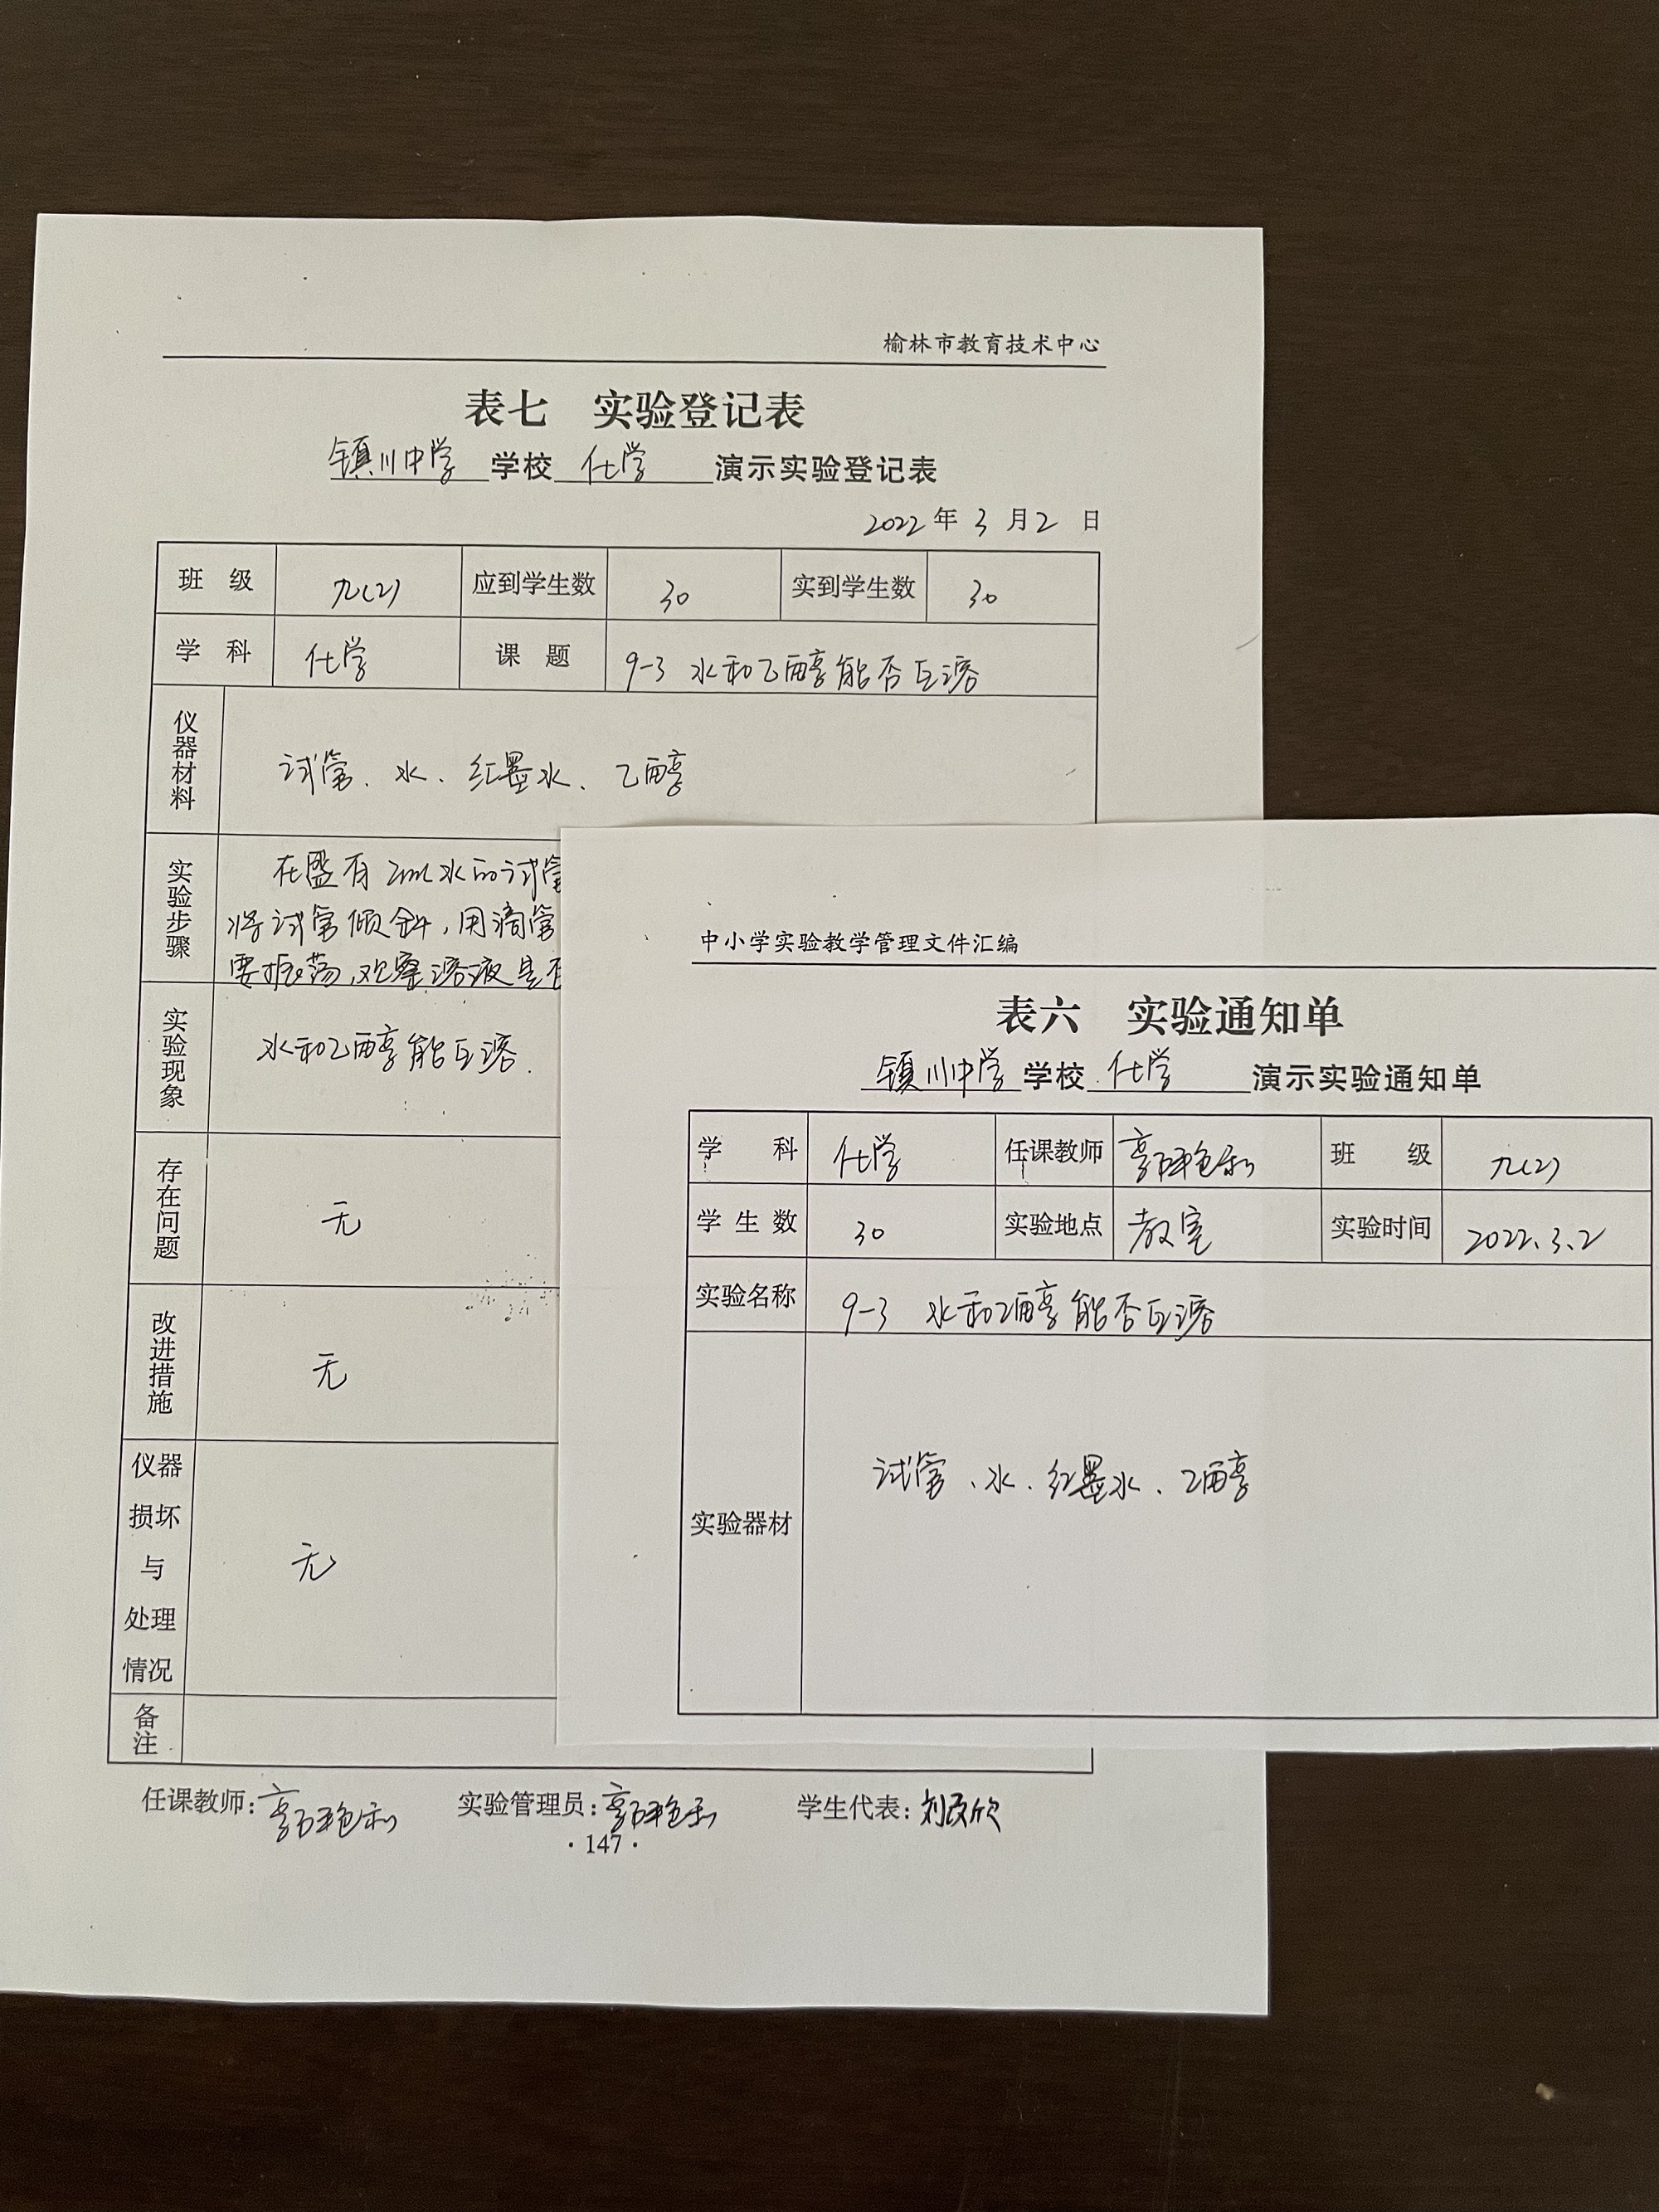 榆林市教育技术中心
表七 实验登记表
镇川中学 学校 化学 演示实验登记表
2022 年 3 月 2 日
班 级 九(2) 应到学生数 30 实到学生数 30
学 科 化学 课 题 9-3 水和乙醇能否互溶
仪器材料 试管、水、红墨水、乙醇
实验步骤 在盛有2mL水的试管
将试管倾斜,用滴管
要振荡,观察溶液是否
实验现象 水和乙醇能互溶.
存在问题 无
改进措施 无
仪器损坏与处理情况 无
备注
任课教师: 实验管理员: 学生代表:
· 147 ·
中小学实验教学管理文件汇编
表六 实验通知单
镇川中学 学校 化学 演示实验通知单
学 科 化学 任课教师 班 级 九(2)
学生数 30 实验地点 教室 实验时间 2022.3.2
实验名称 9-3 水和乙醇能否互溶
实验器材 试管、水、红墨水、乙醇